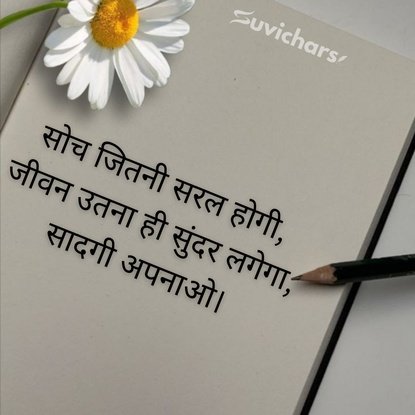 Suvichars
सोच जितनी सरल होगी,
जीवन उतना ही सुंदर लगेगा,
सादगी अपनाओ।